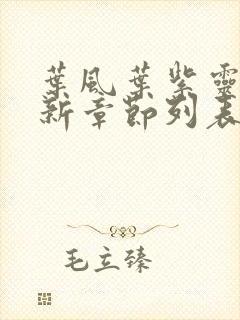 葉風葉紫靈
新章節列表
毛立臻